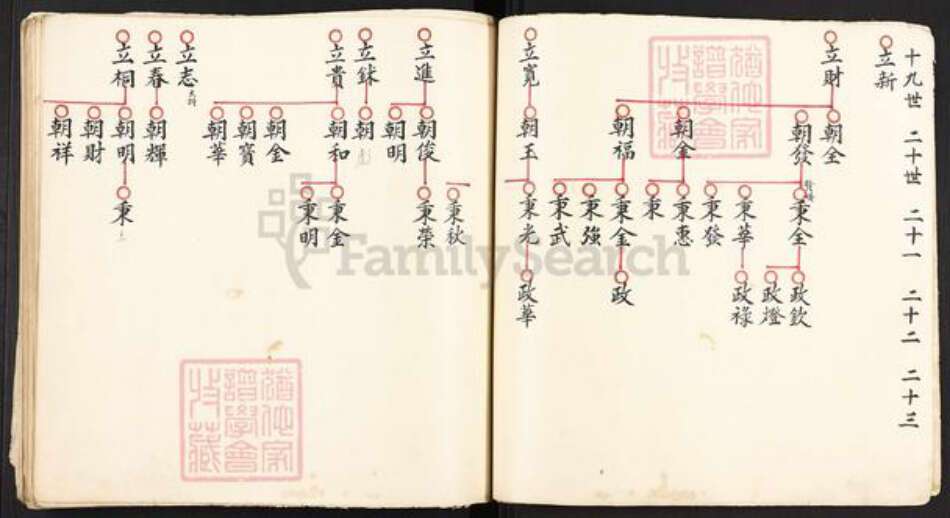 十九世
二十世
二十一
二十二
二十三
立新
立財
朝全
朝發
秉全
政欽
政燈
秉華
政祿
秉發
朝金
秉惠
秉
朝福
秉金
政
秉強
秉武
立寬
朝玉
秉光
政華
秉秋
立進
朝俊
秉榮
朝明
立銶
朝
立貴
朝和
秉金
秉明
朝金
朝寶
朝華
立志
立春
朝輝
立桐
朝明
秉
朝財
朝祥
譜學會
FamilySearch